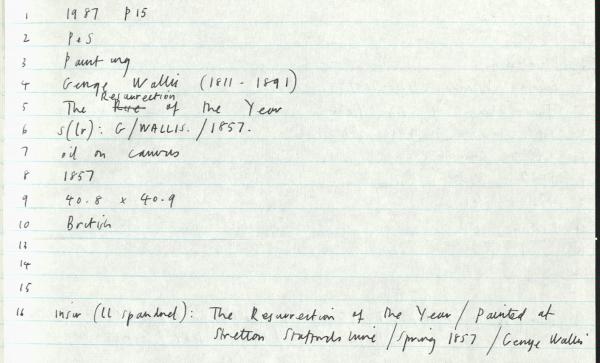 1 1987 P15
2 P&S
3 Painting
4 George Wallis (1811 - 1891)
Resurrection
5 The Rise of the Year
6 s(lr): G/WALLIS. / 1857.
7 oil on canvas
8 1857
9 40.8 x 40.9
10 British
13
14
15
16 inscr (LL spandrel): The Resurrection of the Year / Painted at
Stretton Staffordshire / Spring 1857 / George Wallis